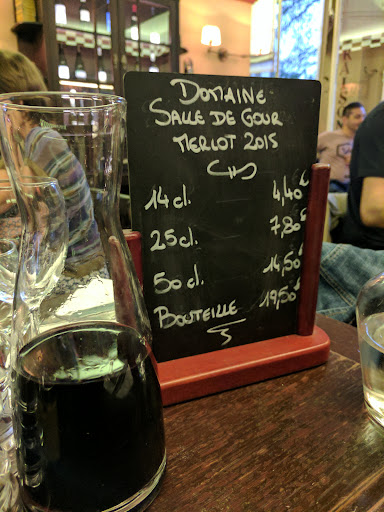 DOMAINE
SALLE DE GOUR
MERLOT 2015
14 cl. 4,40€
25 cl. 7,80€
50 cl. 14,50€
BOUTEILLE 19,50€